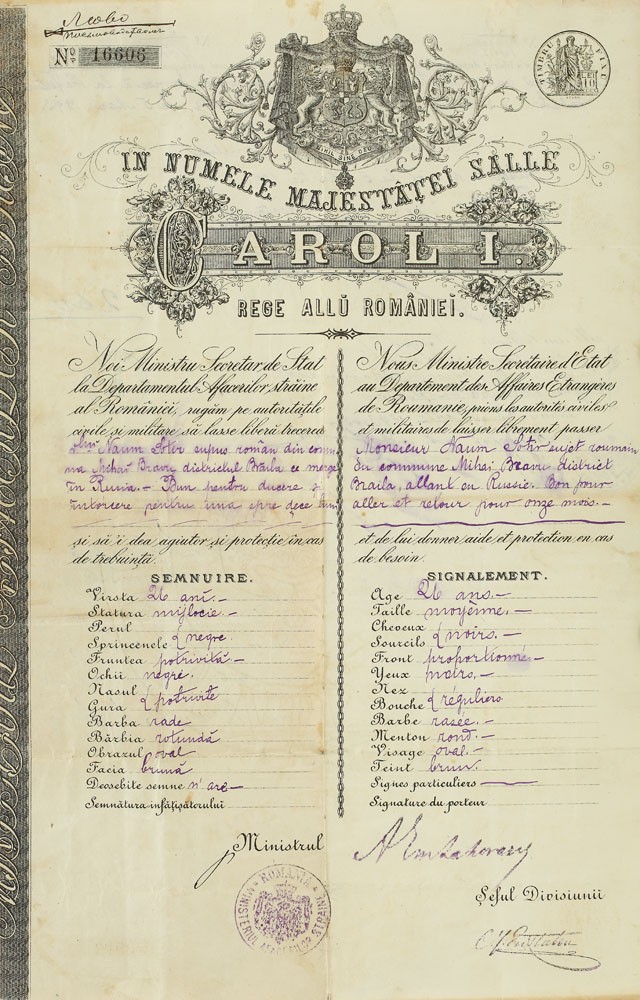 Nº 16606
TIMBRU FIXE
NIHIL SINE DEO
IN NUMELE MAJESTĂŢEI SALLE
CAROL I.
REGE ALLŬ ROMÂNIEĬ.
Noi Ministru Secretar de Stat
la Departamentul Afacerilor străine
al României, rugăm pe autorităţile
civile şi militare să lasse liberă trecerea
Naum Sotir supus român din comu
na Mihai Bravu districtul Braila ce merge
în Rusia. — Bun pentru ducere şi
întorcere pentru una spre dece luni
şi să 'i dea agiutor şi protecţie în cas
de trebuinţă.
SEMNUIRE.
Virsta 26 ani. —
Statura mijlocie. —
Perul
Sprincenele } negre. —
Fruntea potrivită —
Ochii negri. —
Nasul
Gura } potrivite
Barba rade
Bărbia rotundă
Obrazul oval
Facia brună
Deosebite semne n'are —
Semnătura înfăţişătorului
Ministrul
ROMANIA
MINISTERUL AFACERILOR STRĂINE
Nous Ministre Secrétaire d'Etat
au Departement des Affaires Etrangères
de Roumanie, prions les autorités civiles
et militaires de laisser librement passer
Monsieur Naum Sotir sujet roumain
du commune Mihai Bravu district
Braila, allant en Russie. Bon pour
aller et retour pour onze mois. —
et de lui donner aide et protection en cas
de besoin.
SIGNALEMENT.
Age 26 ans. —
Taille moyenne. —
Cheveux
Sourcils } noirs. —
Front proportionné —
Yeux noirs. —
Nez
Bouche } réguliers
Barbe rasée. —
Menton rond. —
Visage oval. —
Teint brun. —
Signes particuliers —
Signature du porteur
Şeful Divisiunii